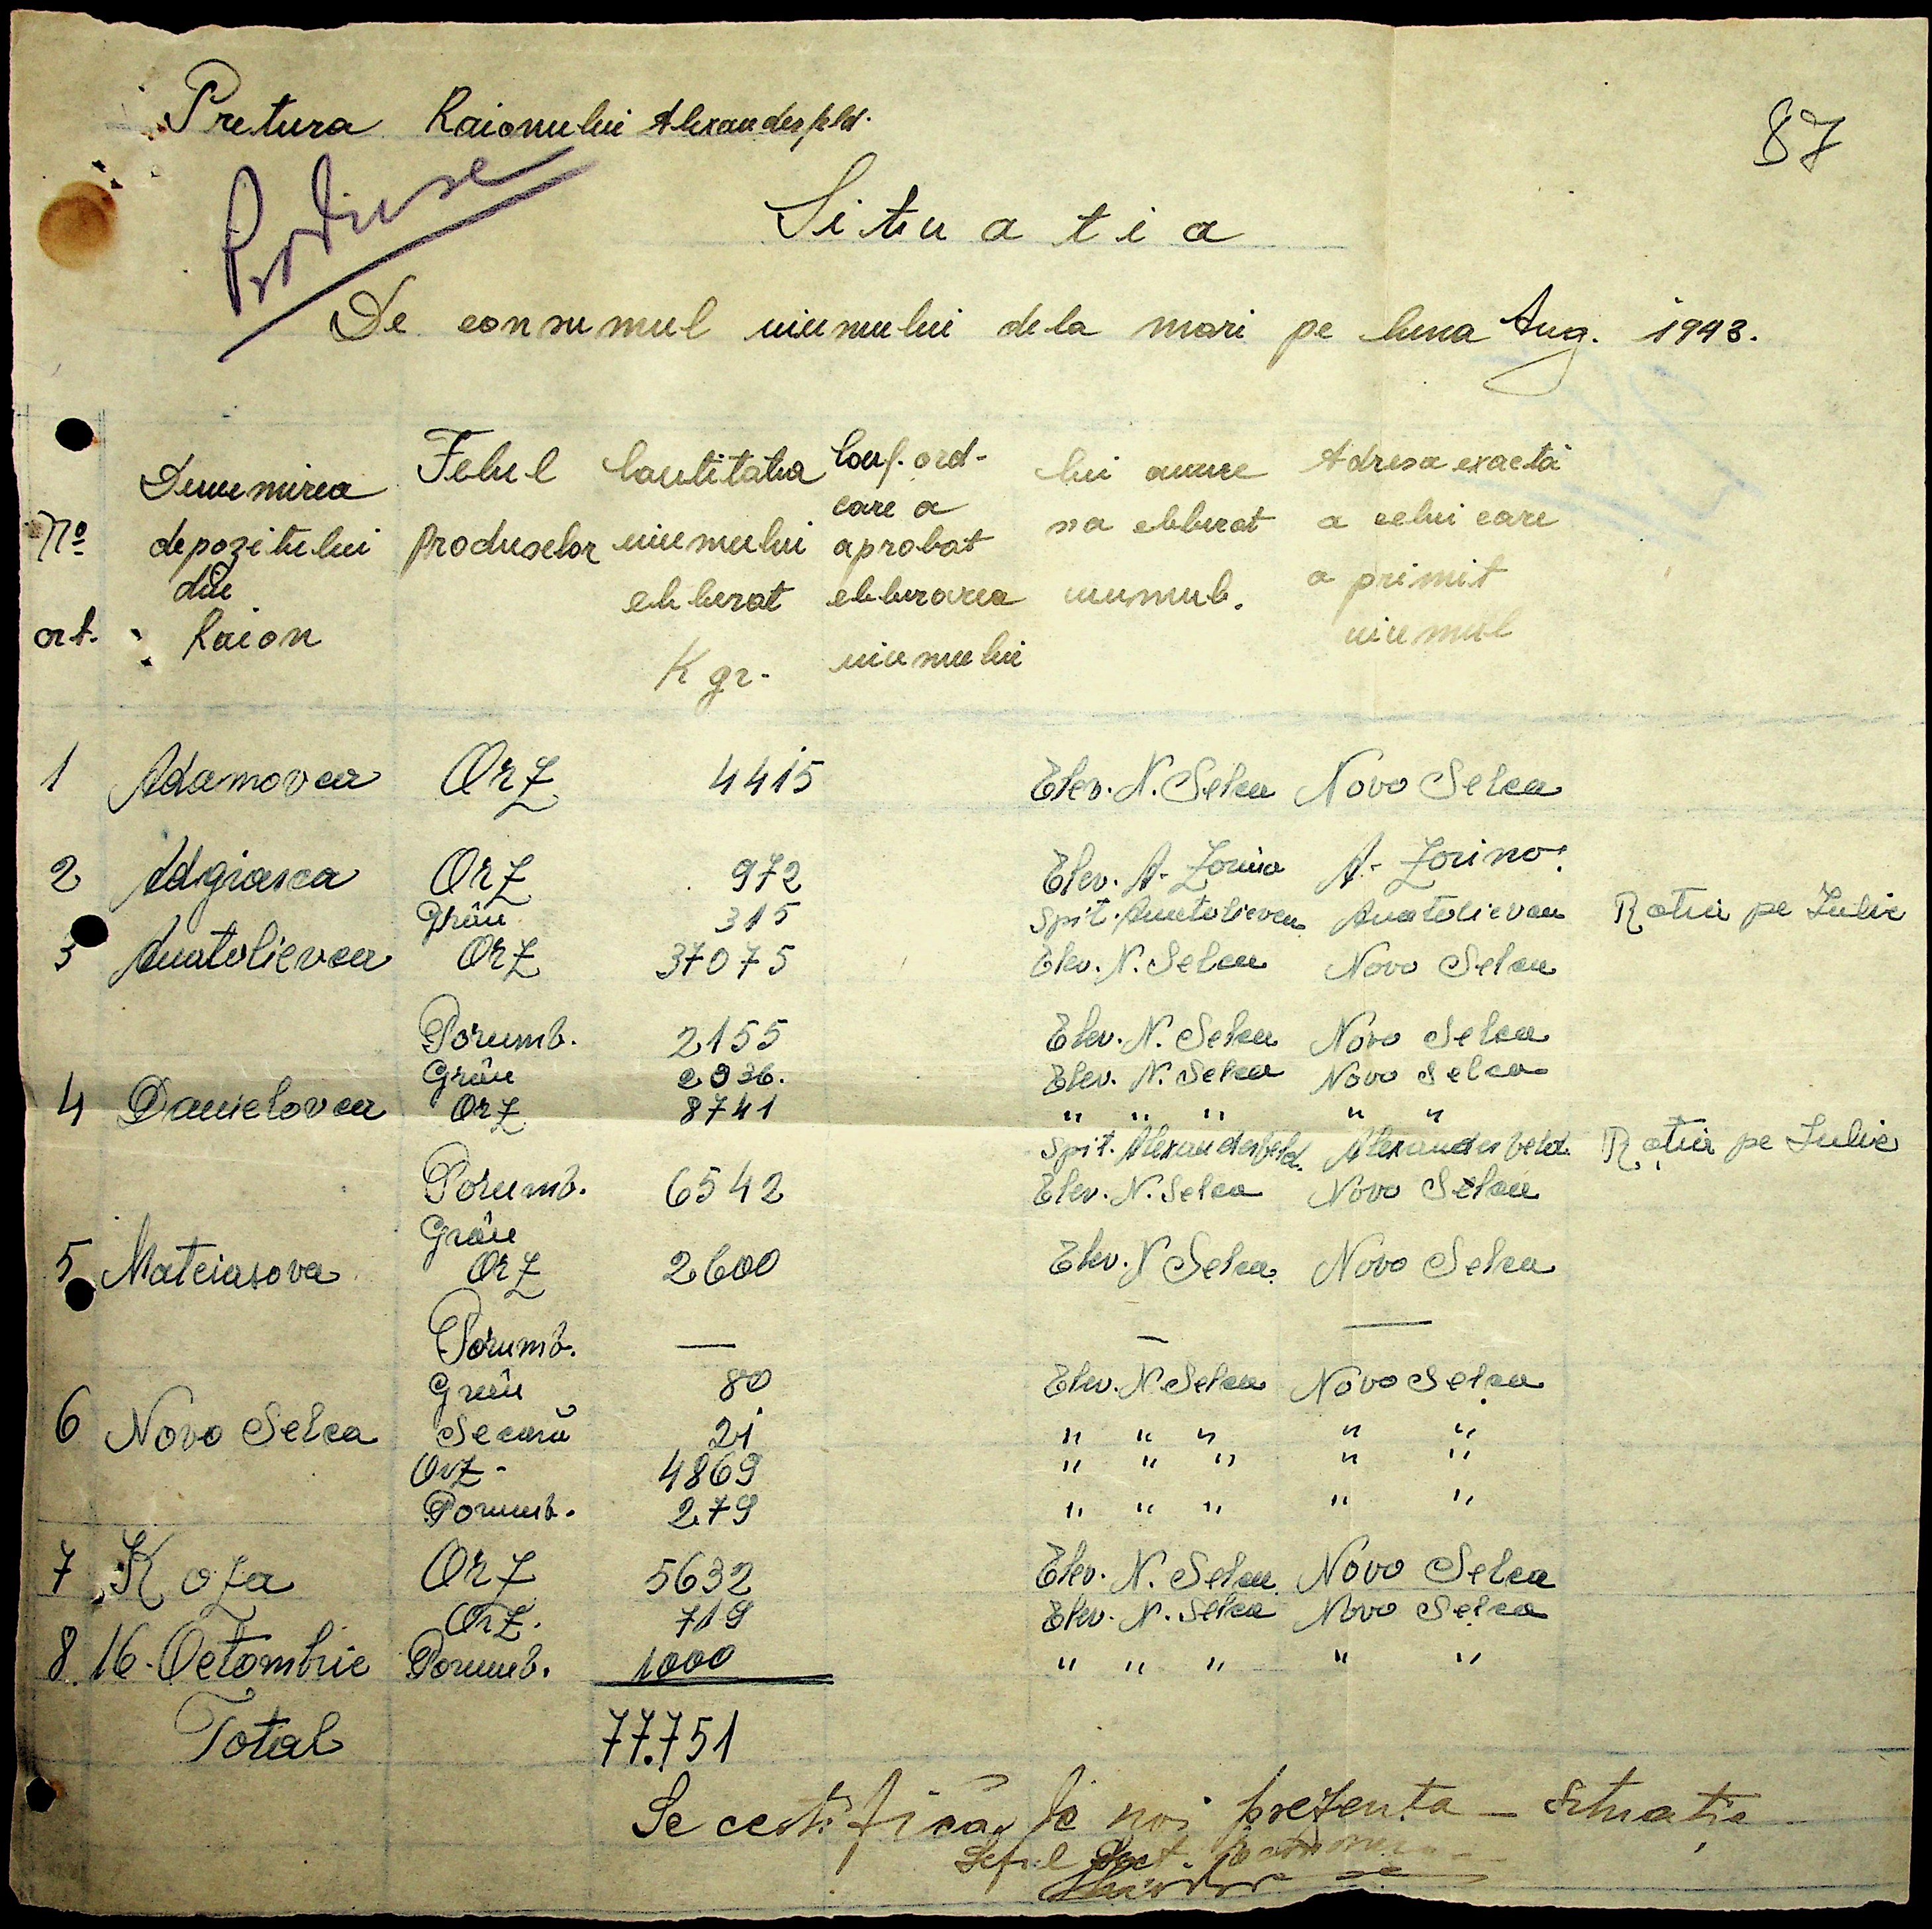 Pretura Raionului Alexanderfeld.
87
Produse
Situatia
De consumul uiumului dela mori pe luna Aug. 1943.
No ort. Denumirea depozitului din Raion
Felul produselor
Cantitatea uiumului eliberat Kgr.
Conf. ord. care a aprobat eliberarea uiumului
Cui anume sa eliberat uiumul.
Adresa exactă a celui care a primit uiumul
1 Adamovca Orz 4415 Elev. N. Selca Novo Selca
2 Adgiasca Orz 972 Elev. A. Zorino A. Zorino.
Grâu 315 Spit. Anatolievca Anatolievca Rația pe Iulie
3 Anatolievca Orz 37075 Elev. N. Selca Novo Selca
Porumb. 2155 Elev. N. Selca Novo Selca
Grâu 2936. Elev. N. Selca Novo Selca
4 Danielovca Orz 8741 " " " " "
Spit. Alexanderfeld. Alexanderfeld. Rația pe Iulie
Porumb. 6542 Elev. N. Selca Novo Selca
Grâu
5 Mateiasova Orz 2600 Elev. N Selca Novo Selca
Porumb. — — —
Grâu 80 Elev. N. Selca Novo Selca
6 Novo Selca Secară 21 " " " " "
Orz - 4869 " " " " "
Porumb. 279 " " " " "
7 Koza Orz 5632 Elev. N. Selca Novo Selca
Orz. 719 Elev. N. Selca Novo Selca
8. 16. Octombrie Porumb. 1000 " " " " "
Total 77.751
Se certifică de noi prezenta situație
Seful